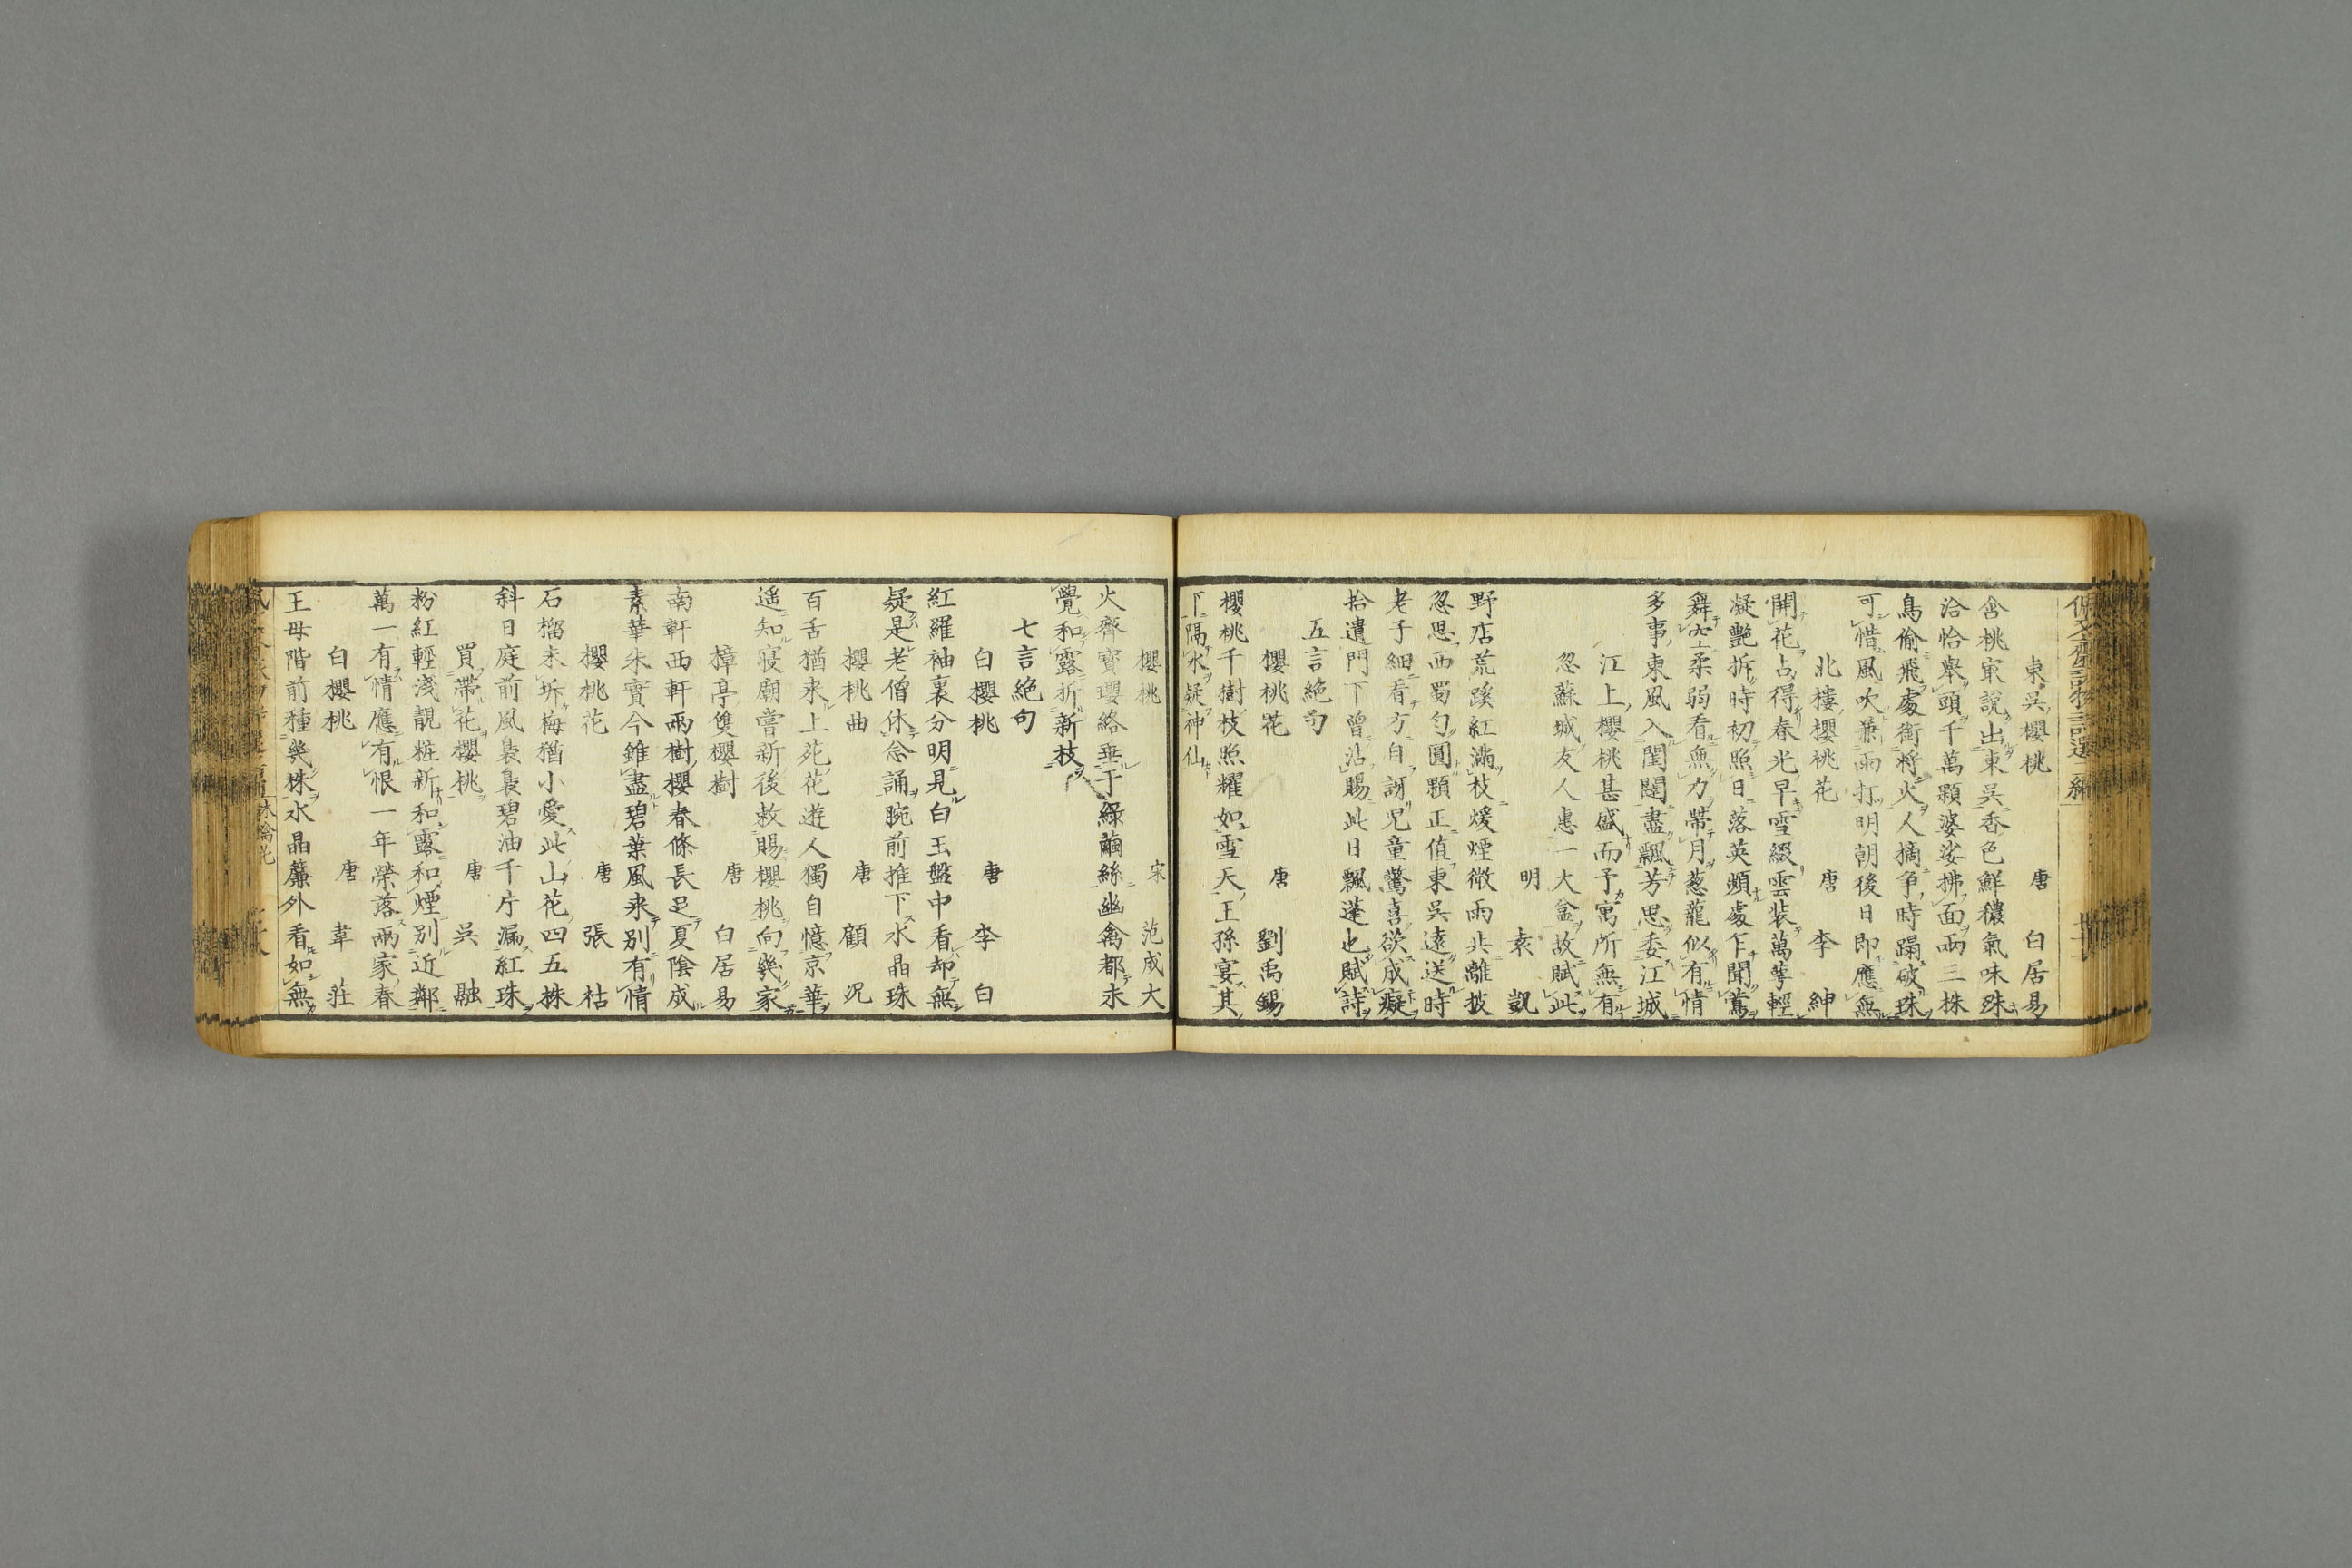 東吳櫻桃　唐　白居易
含桃㝡說出東吳香色鮮穠氣味殊
洽恰舉頭千萬顆婆娑拂面兩三株
鳥偷飛處銜將火人摘争時蹋破珠
可惜風吹兼雨打明朝後日即應無
北樓櫻桃花　唐　李紳
開花占得春光早雪綴雲裝萬萼輕
凝艶拆時初照日落英頻處乍聞鶯
舞空柔弱看無力帶月葱蘢似有情
多事東風入閨闥盡飄芳思委江城
江上櫻桃甚盛而予寓所無有
忽蘇城友人惠一大盆故賦此
明　袁凱
野店荒蹊紅滿枝煖煙微雨共離披
忽思西蜀匀圓顆正值東吳遠送時
老子細看方自訝児童驚喜欲成癡
拾遺門下曾沾賜此日飄蓬也賦詩
五言絕句
櫻桃花　唐　劉禹錫
櫻桃千樹枝照耀如雪天王孫宴其
下隔水疑神仙
櫻桃　宋　范成大
火齊寶瓔絡垂于綠繭絲幽禽都未
覺和露折新枝
七言絕句
白櫻桃　唐　李白
紅羅袖裏分明見白玉盤中看却無
疑是老僧休念誦腕前推下水晶珠
櫻桃曲　唐　顧況
百舌猶来上苑花遊人獨自憶京華
遥知寝廟嘗新後敕賜櫻桃向幾家
樟亭雙櫻樹　唐　白居易
南軒西軒兩樹櫻春條長足夏陰成
素華朱實今雖盡碧葉風来别有情
櫻桃花　唐　張祜
石榴未坼梅猶小愛此山花四五株
斜日庭前風裊裊碧油千片漏紅珠
買帶花櫻桃　唐　吳融
粉紅輕淺靚粧新和露和煙别近鄰
萬一有情應有恨一年榮落兩家春
白櫻桃　唐　韋莊
王母階前種幾株水晶簾外看如無